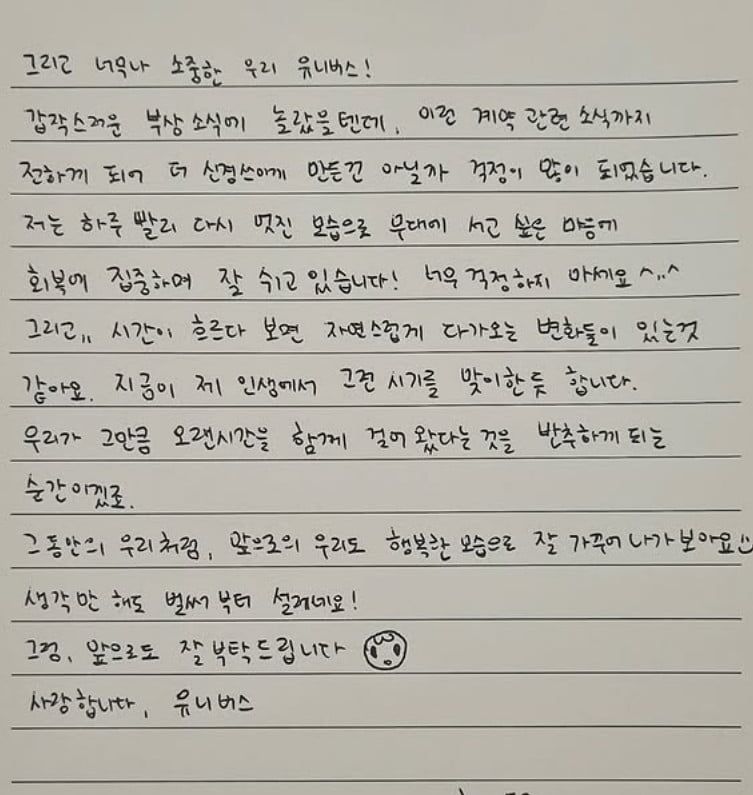 그리고 너무나 소중한 우리 유니버스!
갑작스러운 부상 소식에 놀랐을텐데, 이런 계약 관련 소식까지
전하게 되어 더 신경쓰이게 만든건 아닐까 걱정이 많이 되었습니다.
저는 하루 빨리 다시 멋진 모습으로 무대에 서고 싶은 마음에
회복에 집중하며 잘 쉬고 있습니다! 너무 걱정하지 마세요 ^,,^
그리고,, 시간이 흐르다 보면 자연스럽게 다가오는 변화들이 있는것
같아요. 지금이 제 인생에서 그런 시기를 맞이한듯 합니다.
우리가 그만큼 오랜시간을 함께 걸어왔다는 것을 반추하게 되는
순간이겠죠.
그동안의 우리처럼, 앞으로의 우리도 행복한 모습으로 잘 가꾸어 나가보아요
생각만 해도 벌써부터 설레네요!
그럼, 앞으로도 잘 부탁드립니다
사랑합니다, 유니버스